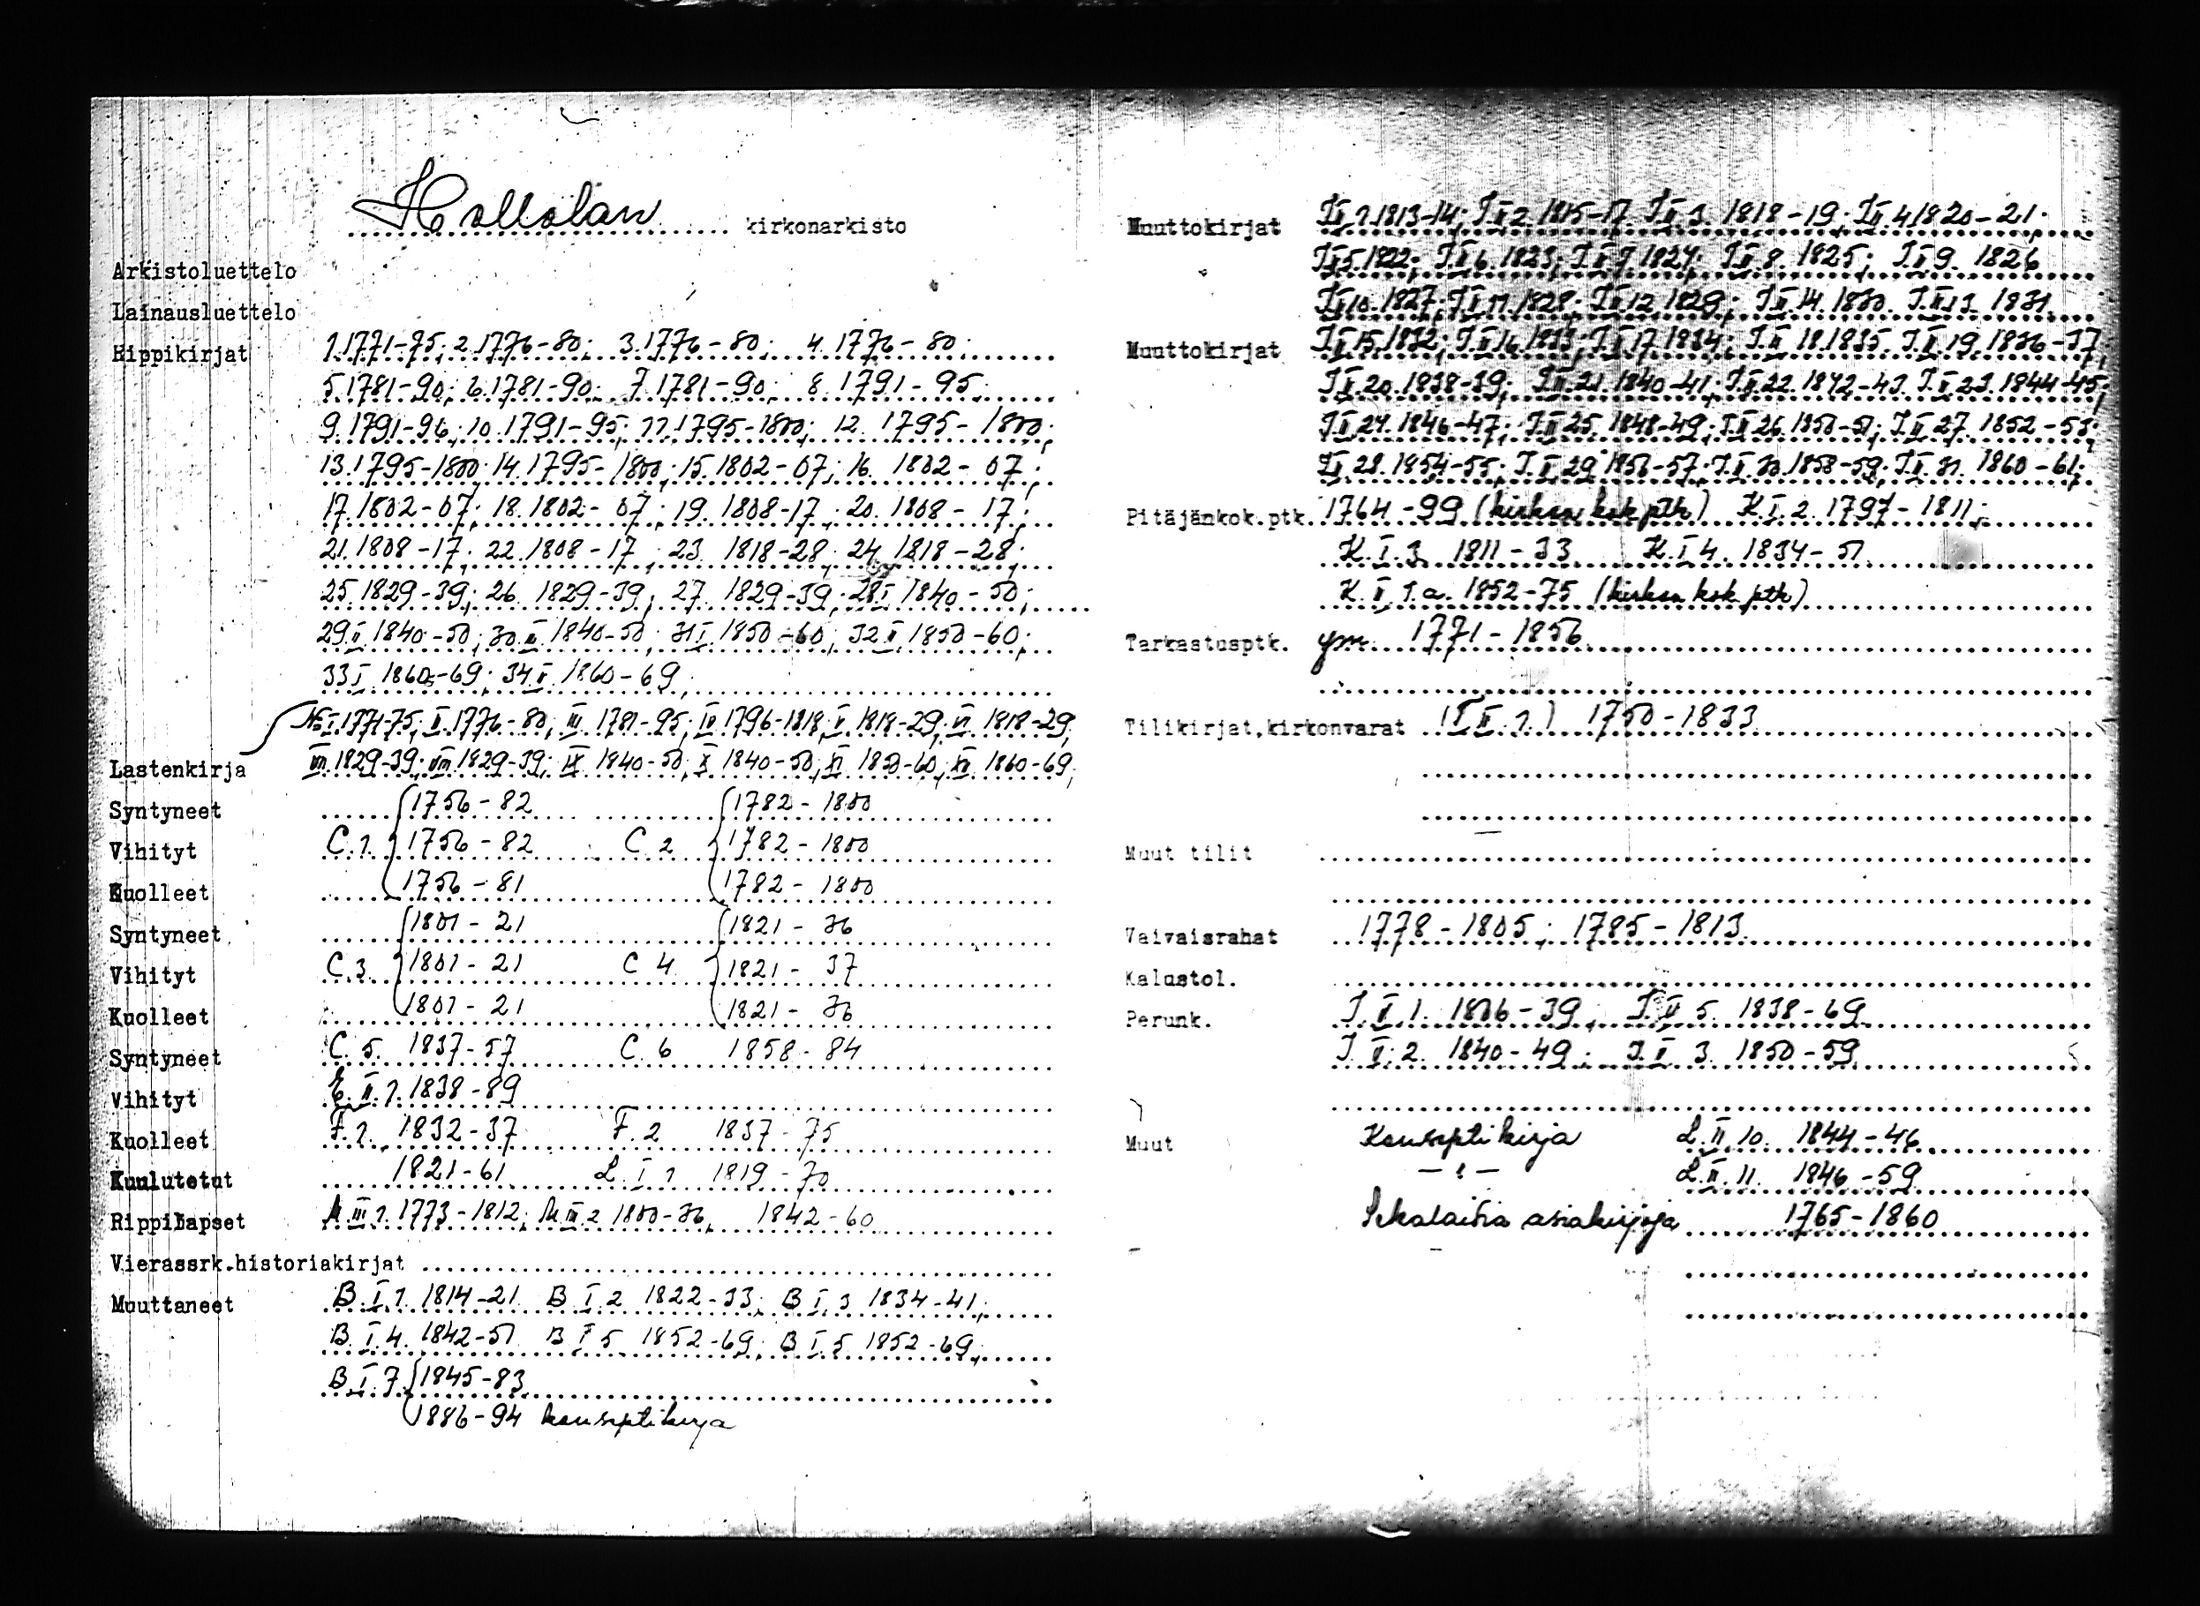 Hollolan kirkonarkisto
Arkistoluettelo
Lainausluettelo
Rippikirjat 1.1771-75; 2.1776-80; 3.1776-80; 4.1776-80;
5.1781-90; 6.1781-90; 7.1781-90; 8.1791-95;
9.1791-96; 10.1791-95; 11.1795-1800; 12. 1795-1800;
13.1795-1800; 14.1795-1800; 15.1802-07; 16. 1802-07;
17.1802-07; 18.1802-07; 19.1808-17; 20.1808-17;
21.1808-17; 22.1808-17; 23. 1818-28; 24.1818-28;
25.1829-39; 26. 1829-39; 27. 1829-39; 28 I 1840-50;
29 II 1840-50; 30 III 1840-50; 31 I 1850-60; 32 II 1850-60;
33 I 1860-69; 34 II 1860-69;
No I 1771-75; II 1776-80; III 1781-95; IV 1796-1818; V 1818-29; VI 1818-29;
Lastenkirja VII 1829-39; VIII 1829-39; IX 1840-50; X 1840-50; XI 1850-60; XII 1860-69;
Syntyneet 1756-82 1782-1800
Vihityt C.1. 1756-82 C.2 1782-1800
Kuolleet 1756-81 1782-1800
Syntyneet 1801-21 1821-36
Vihityt C.3. 1801-21 C 4 1821-37
Kuolleet 1801-21 1821-36
Syntyneet C.5. 1837-57 C.6 1858-84
Vihityt E.II.1.1838-89
Kuolleet F.1. 1832-37 F.2 1837-75
Kuulutetut 1821-61 L.I.1 1819-70
Rippilapset M III 1.1773-1812; M III 2 1800-36, 1842-60
Vierassrk.historiakirjat
Muuttaneet B.I.1. 1814-21 B I 2 1822-33; B I.3 1834-41;
B.I.4. 1842-51 B I 5 1852-69; B I.5 1852-69;
B.I.7 1845-83
1886-94 konseptikirja
Muuttokirjat I II 1.1813-14; I II 2.1815-17 I II 3. 1818-19; I II 4.1820-21;
I II 5.1822; I II 6.1823; I II 7.1824; I II 8. 1825; I II 9. 1826
I II 10.1827; I II 11.1828; I II 12.1829; I II 14.1830 I II 13. 1831
Muuttokirjat I II 15.1832; I II 16.1833; I II 17.1834; I II 18.1835. I II 19.1836-37;
I II 20.1838-39; I II 21.1840-41; I II 22.1842-43. I II 23.1844-45;
I II 24.1846-47; I II 25.1848-49; I II 26.1850-51; I II 27.1852-53;
I II 28.1854-55; I II 29 1856-57; I II 30.1858-59; I II 31. 1860-61;
Pitäjänkok.ptk. 1764-99 (kirkon kok ptk) K.I.2. 1797-1811;
K.I.3. 1811-33 K.I 4. 1834-51
K.II.1.a. 1852-75 (kirkon kok ptk)
Tarkastusptk. ym. 1771-1856
Tilikirjat,kirkonvarat 1750-1833
Muut tilit
Vaivaisrahat 1778-1805; 1785-1813
Kalustol.
Perunk. I.II.1. 1806-39; I.II 5. 1838-69
I.II.2. 1840-49; I.II 3. 1850-59
Muut Konseptikirja L.II.10. 1844-46
-"- L.II.11. 1846-59
Sekalaisia asiakirjoja 1765-1860